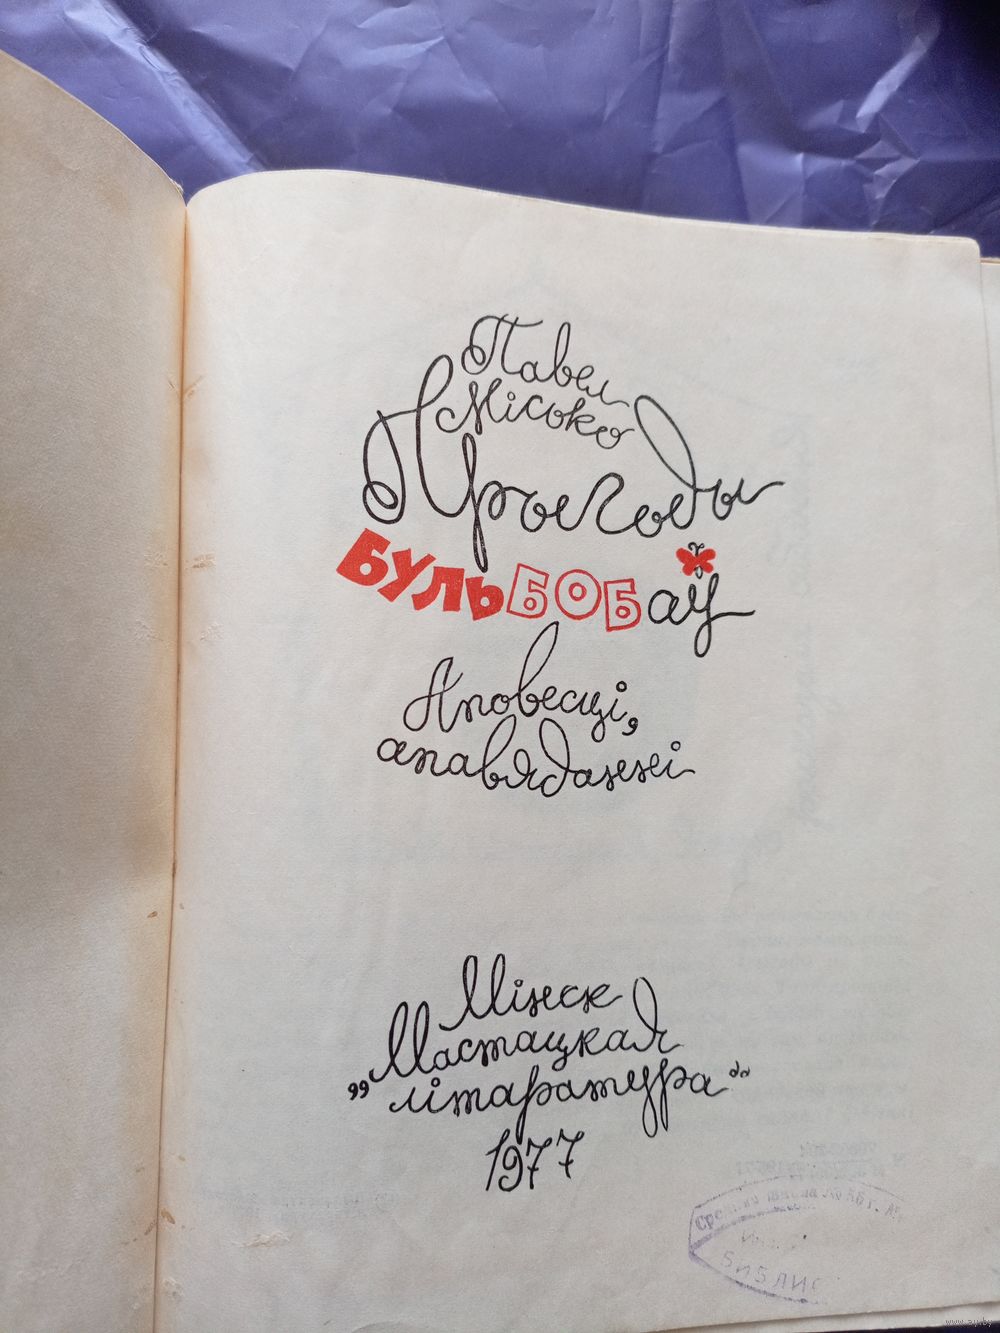 Павел
Місько
Прыгоды
БУЛЬБОБаў
Аповесці,
апавяданні
Мінск
„Мастацкая
літаратура“
1977
Средняя школа №
БИБЛИО
www.ay.by